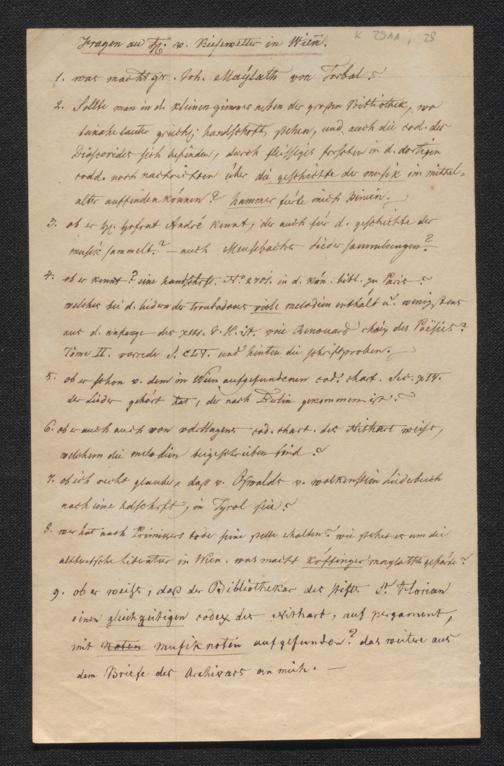 Fragen an H. v. Kiesewetter in Wien.
1. was macht gr. Joh. Maÿlath von Torbal?
2. Sollte man in d. kleinen zimmer neben der großen Bibliothek, wo
lauter griech. handschrift. stehen, und auch die cod. des
Dioscorides sich befinden, durch fleissiges forschen in d. dortigen
codd. noch nachrichten über die geschichte der musik im mittel-
alter auffinden können? hammer mich hinein.
3. ob er H. hofrat André kennt, der auch für d. geschichte der
musik sammelt? – auch Meusebachs lieder sammlungen?
4. ob er kennt? eine handschrift. in d. kön. bibl. zu Paris?
welches bei d. liedern der troubadours viele melodien enthält u. wenigstens
aus d. anfange des XIII. J. H. ist. Renouard choix des Poësies?
Tome II. vorrede S. CLIV. und hinten die schriftproben.
5. ob er schon v. dem in Wien aufgefundenen cod. chart. Sec. XIV.
der Lieder gehört hat, der nach Berlin gekommen ist?
6. ob er auch von vdHagens cod. chart. des Nithart weiß,
welchem die melodien beigeschrieben sind?
7. ob ich recht glaube, daß v. Oswalds v. wolkenstein liederbuch
noch eine hdschrift, in Tyrol sei?
8. wer hat nach Primissers tode seine stelle erhalten? wie stehet es um die
altdeutsche literatur in Wien. was macht Köffinger maylaths gefährte?
9. ob er weiß, daß der Bibliothekar des stiftes S. Florian
einen gleichzeitigen codex des Nithart, auf pergament,
mit noten musiknoten aufgefunden? das weitere aus
dem Briefe des Archivars an mich. –